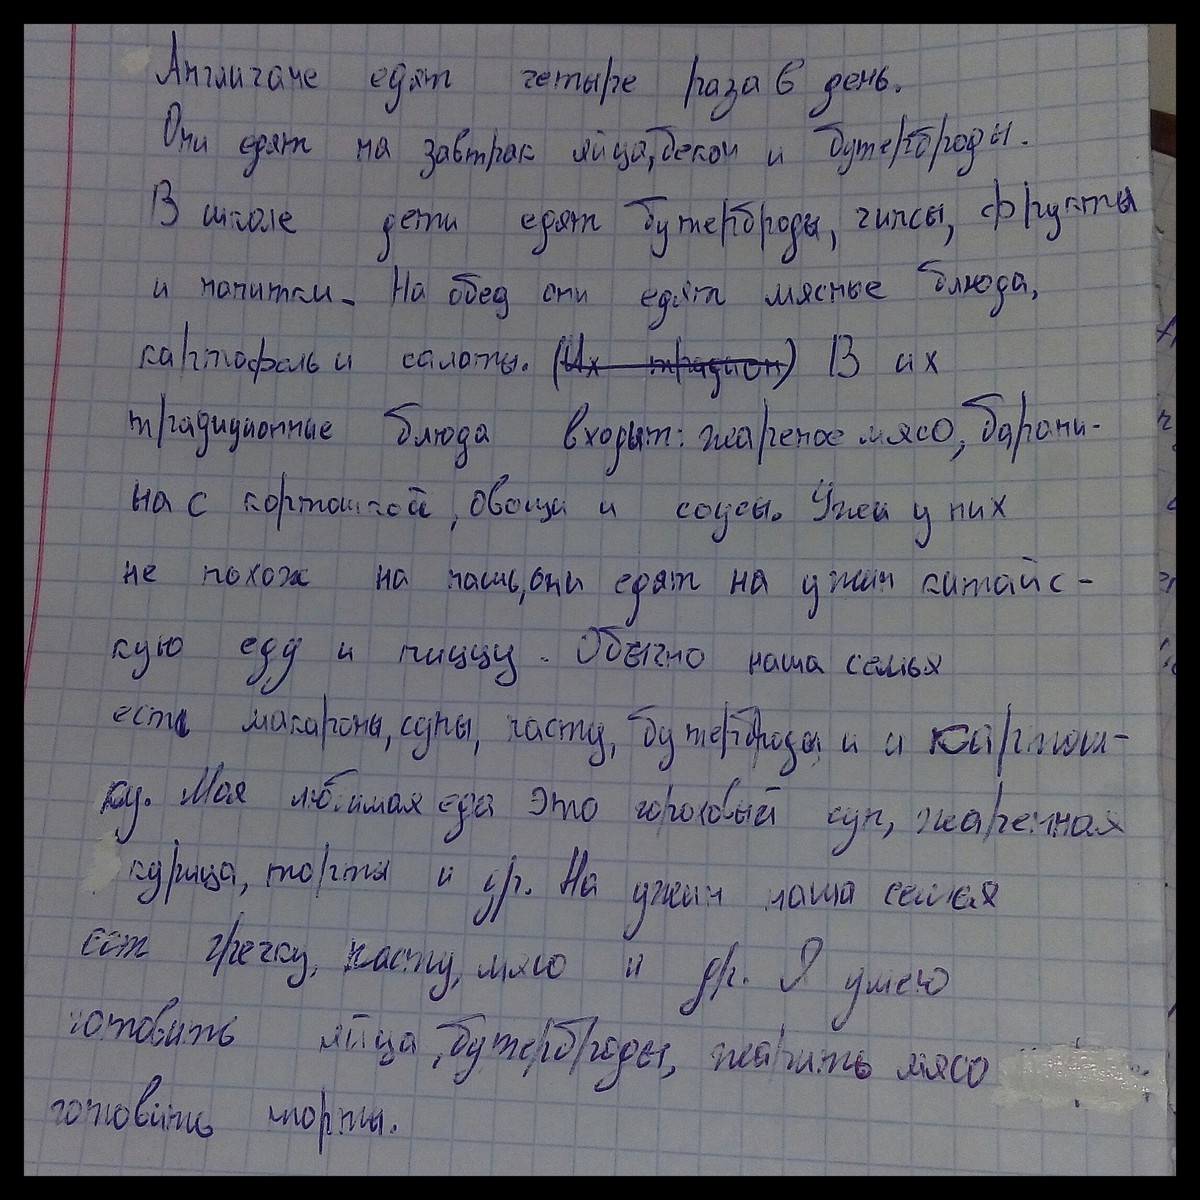 Англичане едят четыре раза в день.
Они едят на завтрак яйца, бекон и бутерброды.
В школе дети едят бутерброды, чипсы, фрукты
и напитки. На обед они едят мясные блюда,
картофель и салаты. (Их традицион) В их
традиционные блюда входят: жареное мясо, барани-
на с картошкой, овощи и соусы. Ужин у них
не похож на наш, они едят на ужин китайс-
кую еду и пиццу. Обычно наша семья
есть макароны, супы, пасту, бутерброды и и картош-
ку. Моя любимая еда это гороховый суп, жаренная
курица, торты и др. На ужин наша семья
ест гречку, пасту, мясо и др. Я умею
готовить яйца, бутерброды, жарить мясо
готовить торты.